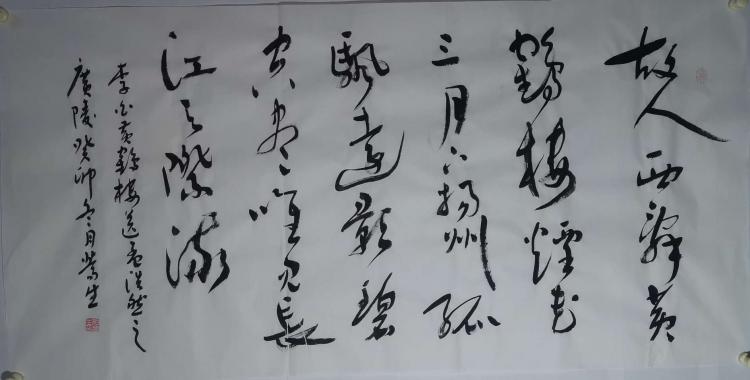 故人西辞黄
鶴樓煙花
三月下揚州孤
颿遠影碧
空盡唯見長
江天際流
李白黄鶴樓送孟浩然之
廣陵癸卯冬月生